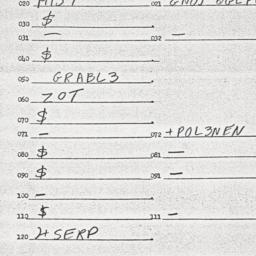 020 021
030 $
031 — 032 —
040 $
050 GRABL3
060 ZOT
070 $
071 — 072 +POL3NEN
080 $ 081 —
090 $ 091 —
100 —
110 $ 111 —
120 4SERP